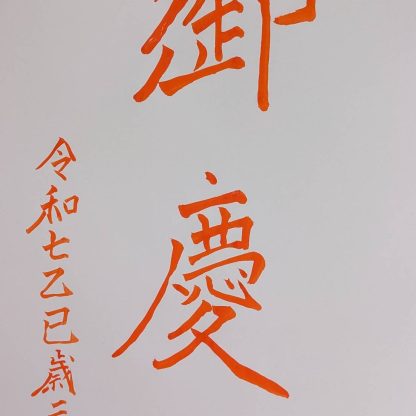 御慶
令和七乙巳歳